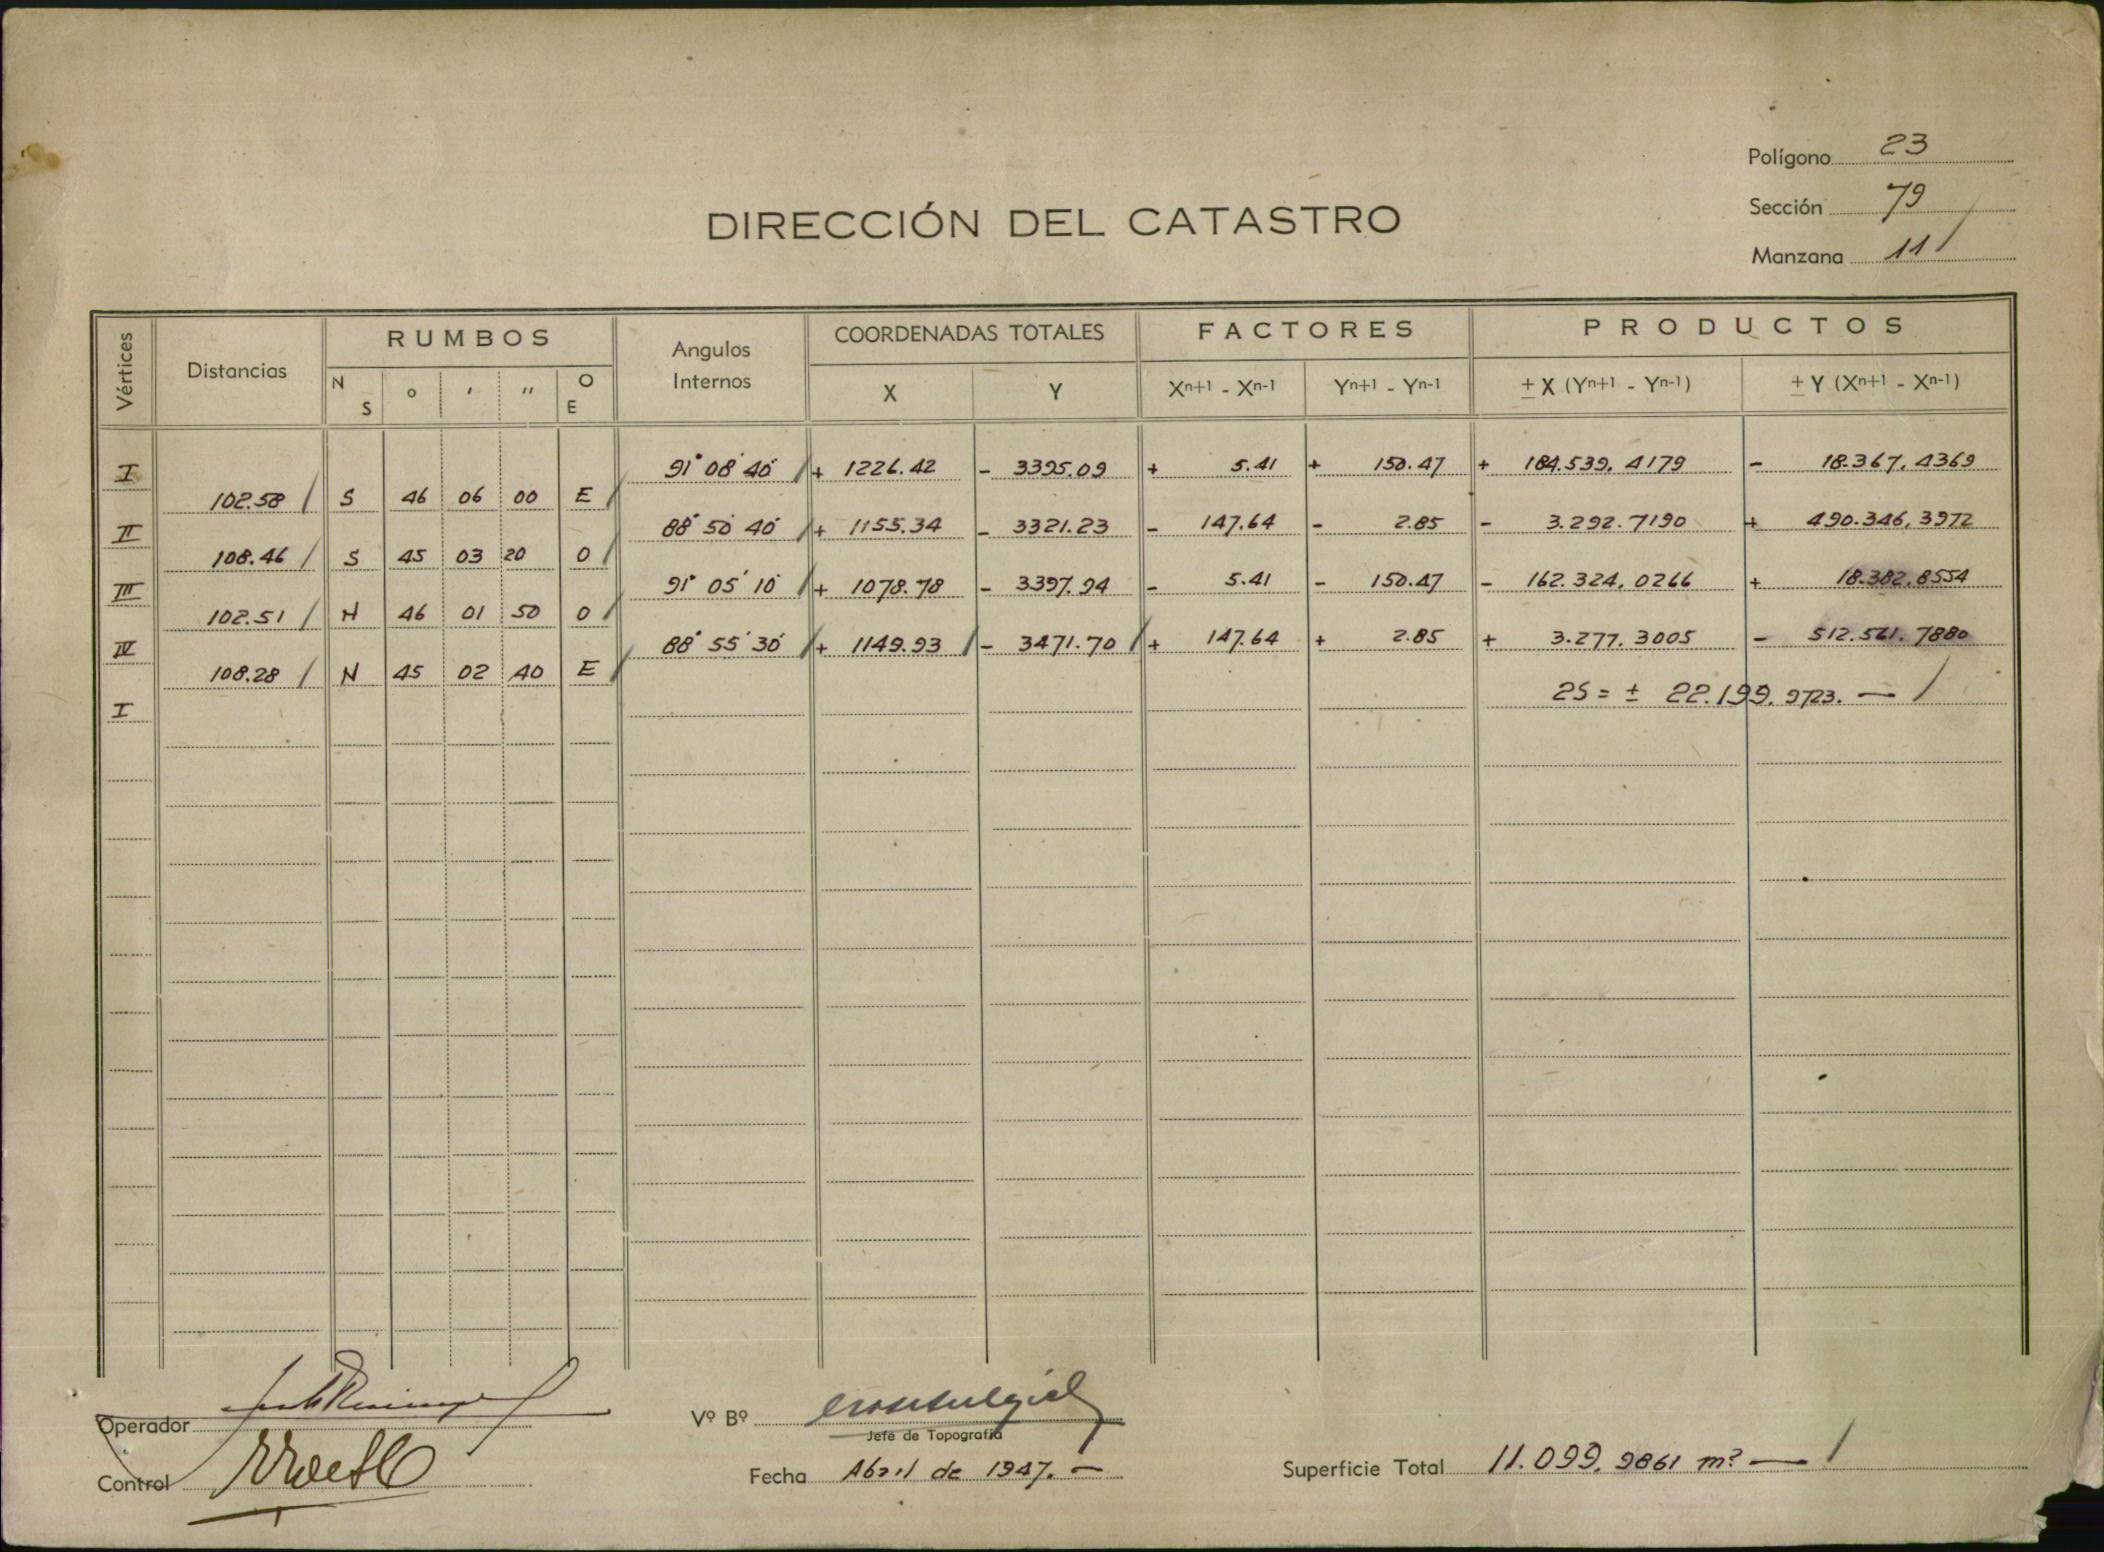 Polígono 23
Sección 79
DIRECCIÓN DEL CATASTRO
Manzana 11
Vértices Distancias RUMBOS Angulos Internos COORDENADAS TOTALES FACTORES PRODUCTOS
N S ° ' '' O E X Y Xn+1 - Xn-1 Yn+1 - Yn-1 ± X (Yn+1 - Yn-1) ± Y (Xn+1 - Xn-1)
I 91° 08' 40'' + 1226.42 - 3395.09 + 5.41 + 150.47 + 184.539,4179 - 18.367,4369
102.58 S 46 06 00 E
II 88° 50' 40'' + 1155.34 - 3321.23 - 147.64 - 2.85 - 3.292.7190 + 490.346,3972
108.46 S 45 03 20 O
III 91° 05' 10'' + 1078.78 - 3397.94 - 5.41 - 150.47 - 162.324,0266 + 18.382,8554
102.51 N 46 01 50 O
IV 88° 55' 30'' + 1149.93 - 3471.70 + 147.64 + 2.85 + 3.277.3005 - 512.561.7880
108.28 N 45 02 40 E
I 2S = ± 22.199.9723.—
Operador
Vº Bº
Jefe de Topografía
Control
Fecha Abril de 1947.—
Superficie Total 11.099.9861 m² —